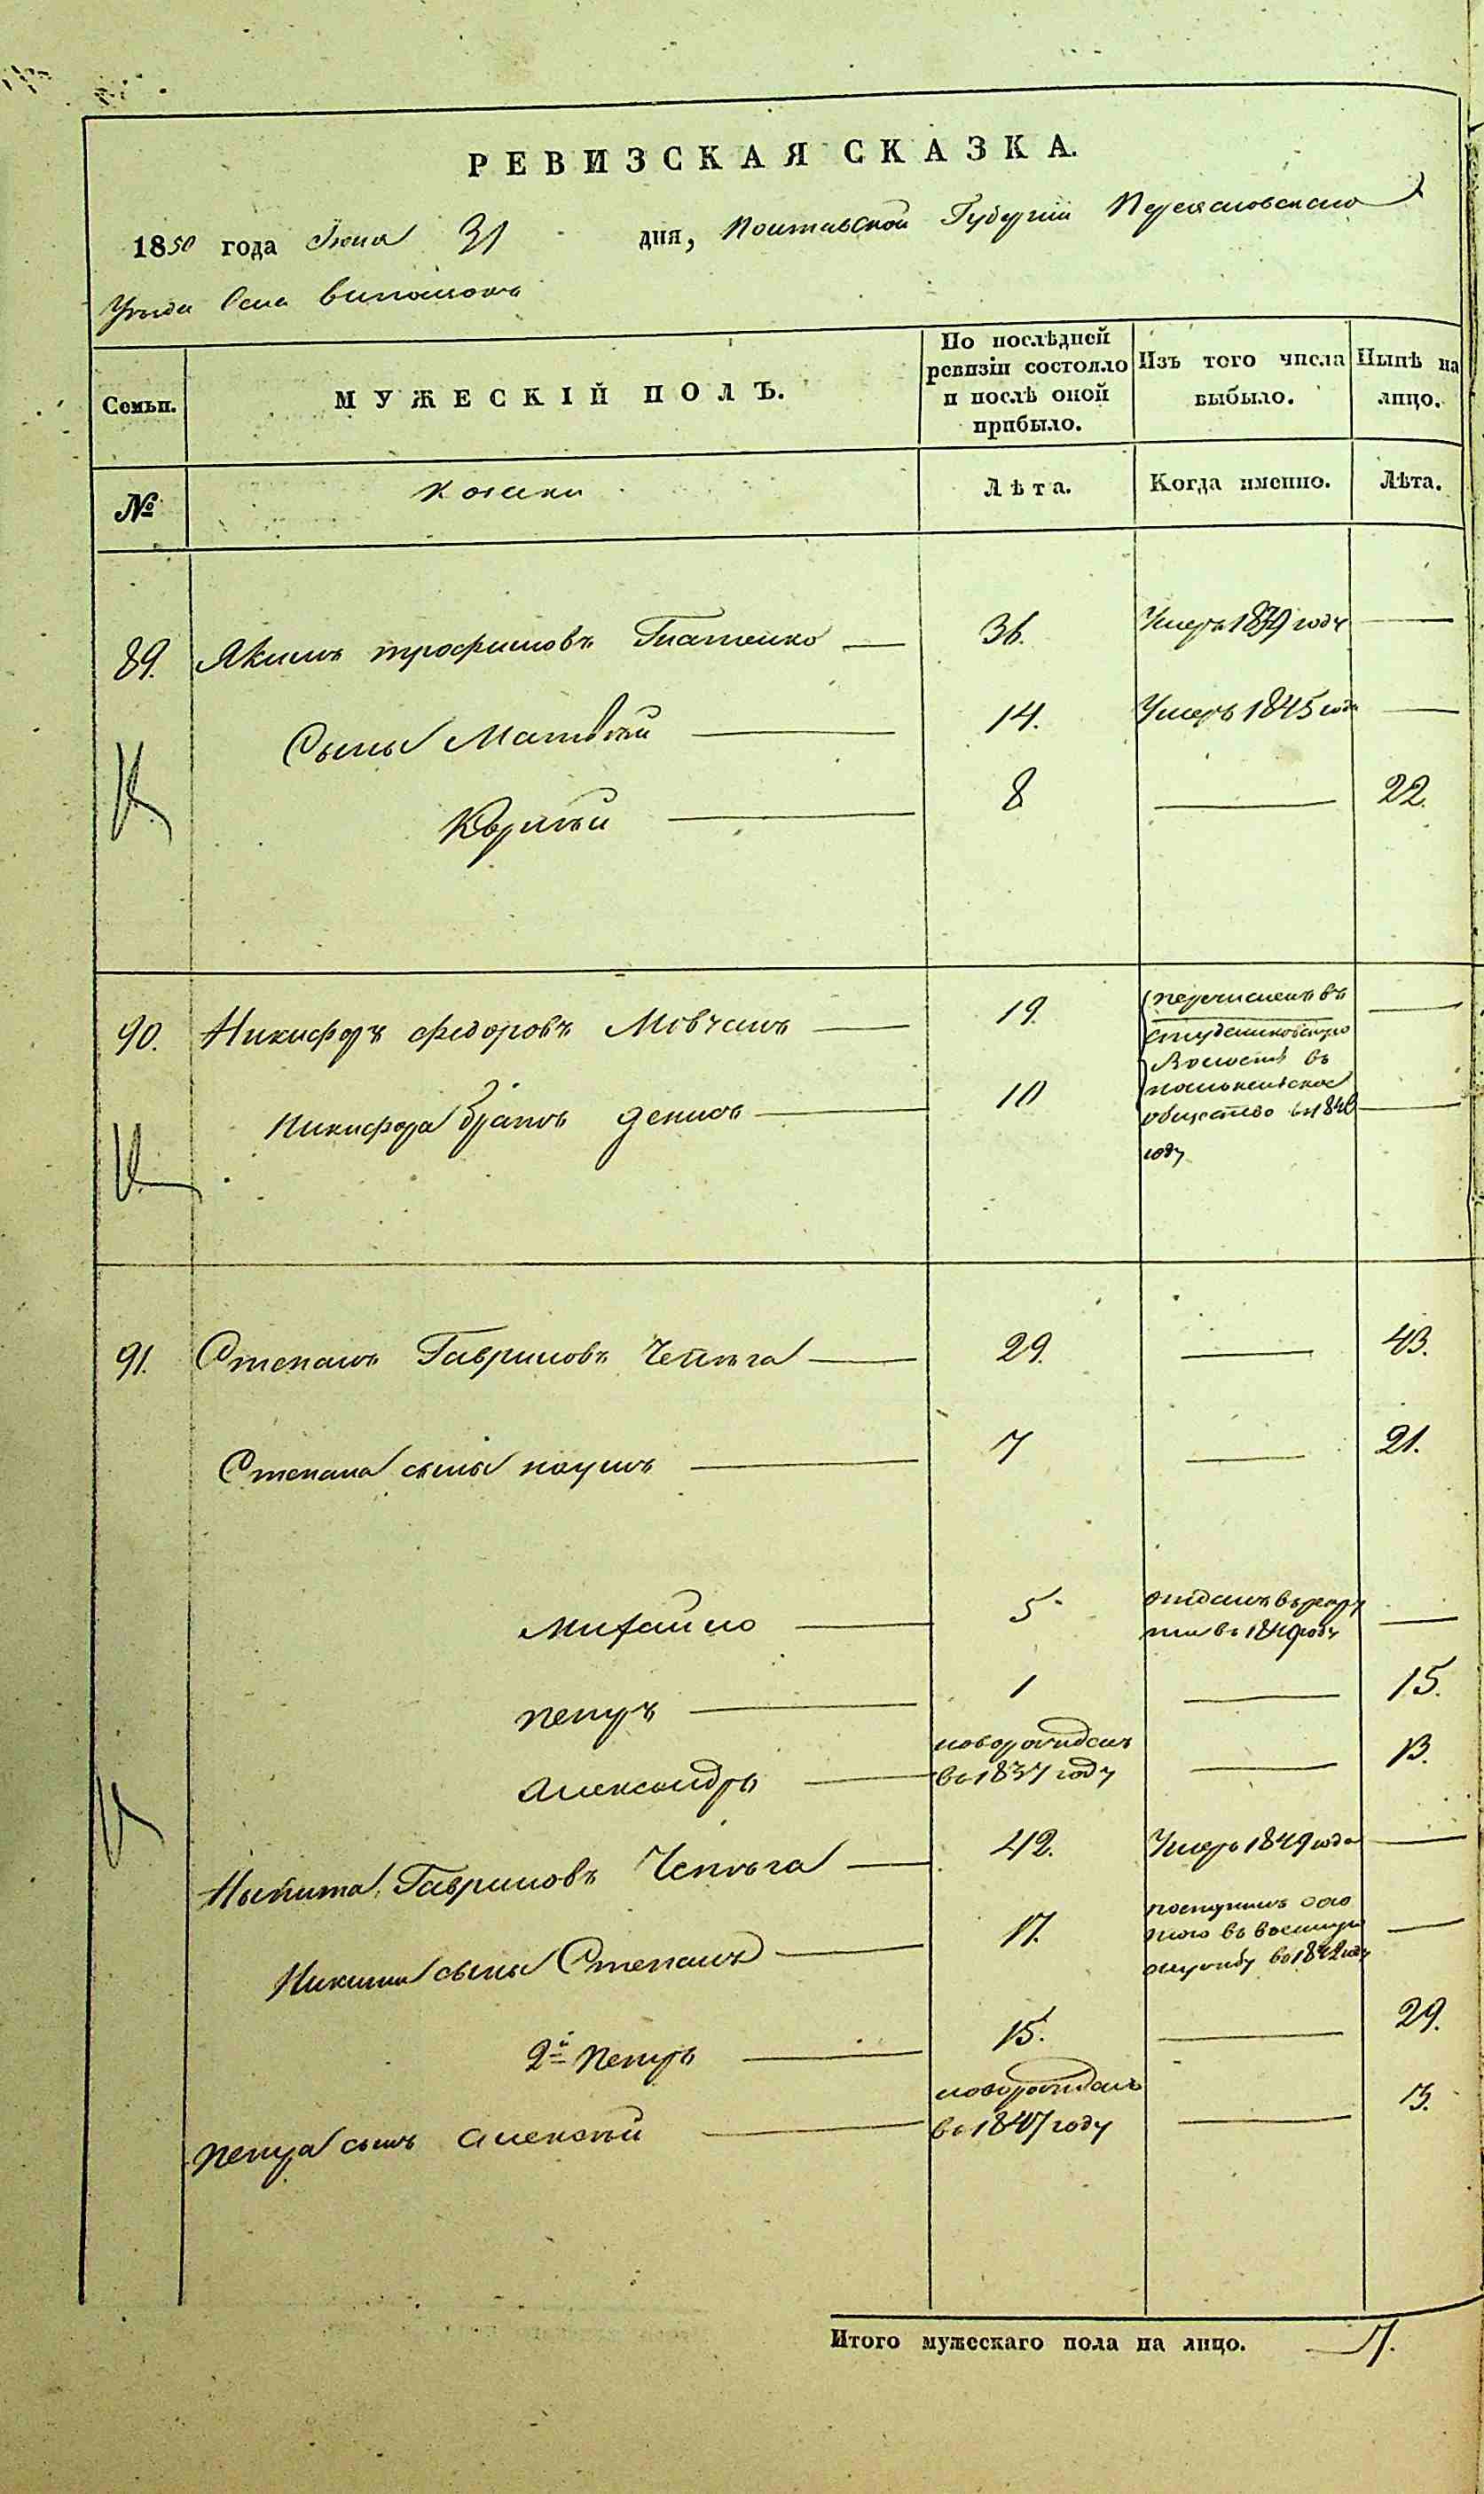 РЕВИЗСКАЯ СКАЗКА.
1850 года Июля 31 дня, Полтавской Губернии Переясловскаго
Уезда Села
Семьи.
МУЖЕСКІЙ ПОЛЪ.
По послѣдней ревизіи состояло и послѣ оной прибыло.
Изъ того числа выбыло.
Нынѣ на лицо.
№
козаки
Лѣта.
Когда именно.
Лѣта.
89. Якимъ трофимовъ Гнатенко — 36. Умеръ 1839 году —
Сыны Матвѣй — 14. Умеръ 1845 года —
Корнѣй — 8 — 22.
90. Никифоръ федоровъ Мовчанъ — 19. перечисленъ въ —
студениковскую
Волость въ
Никифора братъ денисъ — 10
общество въ 1846 —
году
91. Степанъ Гавриловъ Чепѣга — 29. — 43.
Степана сыны наумъ — 7 — 21.
Михайло — 5 отданъ въ рекру
ты въ 1849 году —
петръ — 1 — 15.
александръ — новорожденъ
въ 1837 году — 13.
Никита Гавриловъ Чепѣга — 42. Умеръ 1849 года —
Никиты сыны Степанъ — 17. поступилъ охо
тою въ военную —
службу въ 1842 году
2й петръ — 15. — 29.
петра сынъ алексѣй — новорожденъ
въ 1847 году — 3.
Итого мужескаго пола на лицо. — 7.